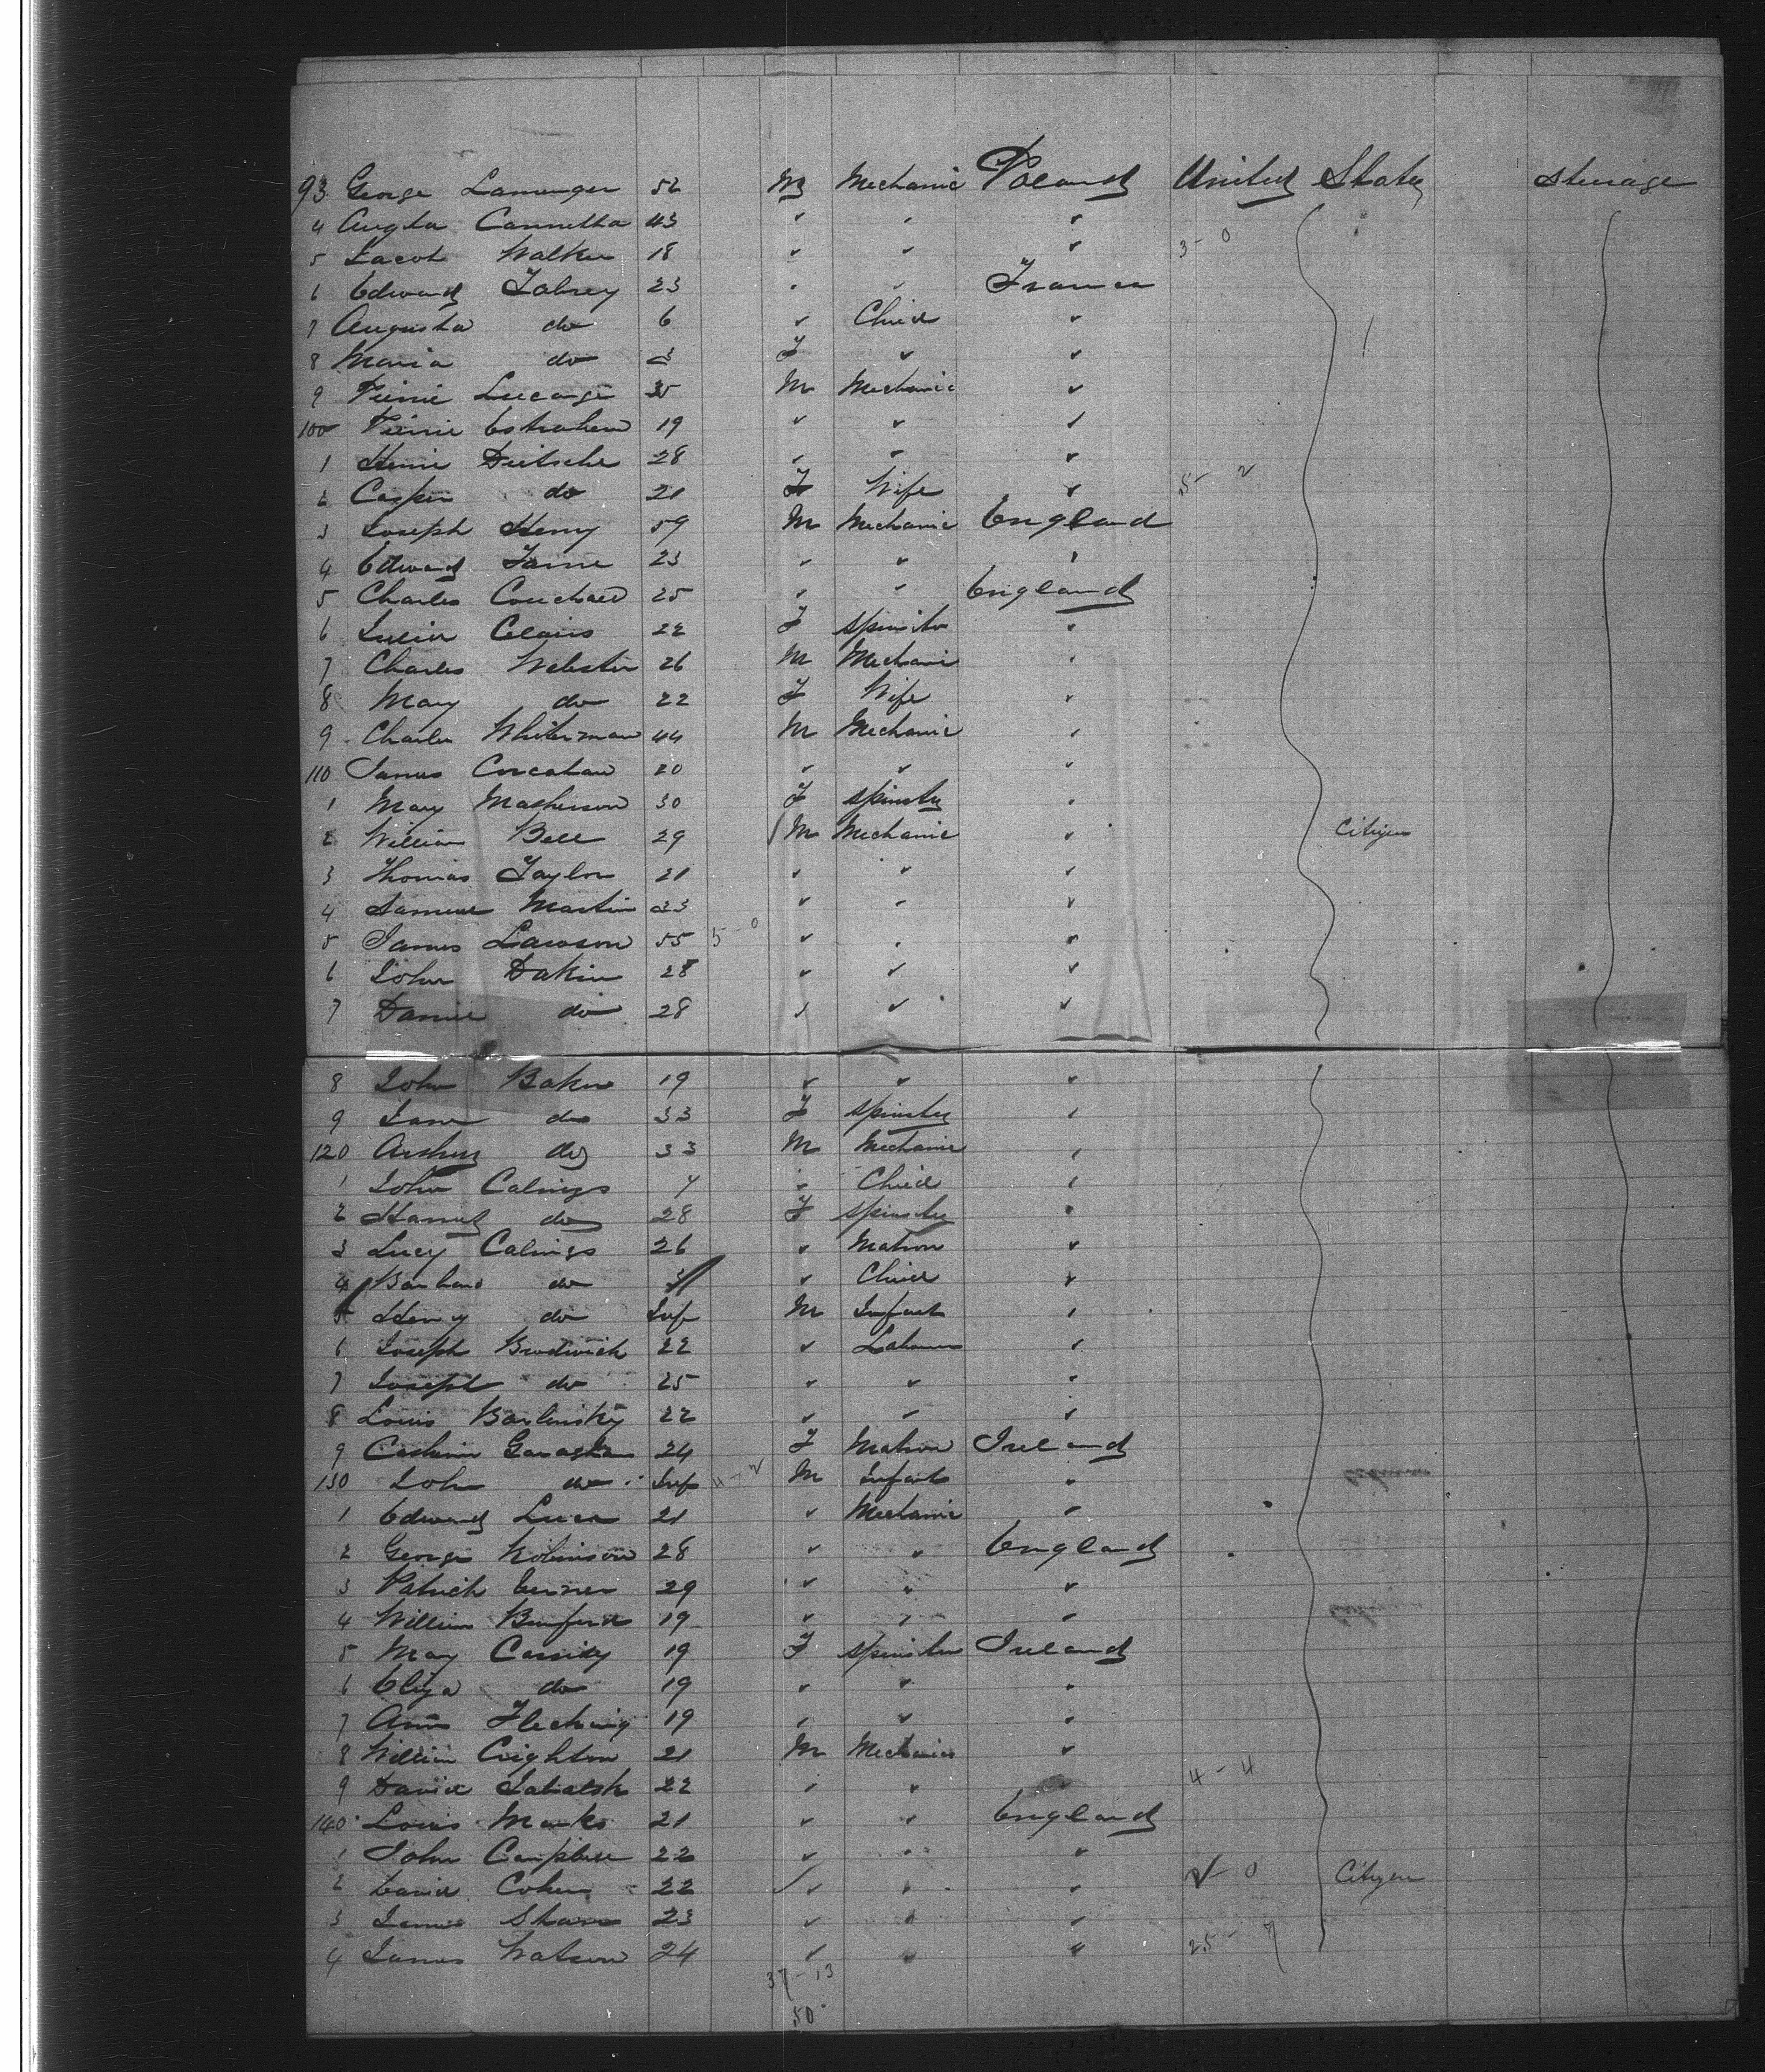 93 George Lamenger 52 M Mechanic Poland United States Steerage
4 Augta Cannetha 43 " " "
5 Jacob Walker 18 " " " 3-0
6 Edward Fabrey 23 " " France
7 Augusta do 6 " Child "
8 Maria do 3 F " "
9 Pierre 35 M Mechanic "
100 Pierre 19 " " "
1 Henri Dietsche 28 " " "
2 Casper do 21 F Wife " 5-2
3 Joseph Henry 59 M Mechanic England
4 Edward 23 " " "
5 Charles Couchard 25 " " England
6 22 F Spinster "
7 Charles Webster 26 M Mechanic "
8 Mary do 22 F Wife "
9 Charles Whiterman 44 M Mechanic "
110 James 20 " " "
1 Mary Matherson 30 F Spinster "
2 William Bell 29 M Mechanic " Citizen
3 Thomas Taylor 21 " " "
4 Samuel Martin 23 " " "
5 James Lawson 55 5-0 " " "
6 John Dakin 28 " " "
7 Daniel do 28 " " "
8 John Baker 19 " " "
9 Jane do 33 F Spinster "
120 Arthur do 33 M Mechanic "
1 John Calnigs 7 " Child "
2 Harriet do 28 F Spinster "
3 Lucy Calnigs 26 " Matron "
4 Barbara do 3 " Child "
5 Henry do Inf M Infant "
6 Joseph Brodwick 22 " Labourer "
7 Joseph do 25 " " "
8 Louis Barlinsky 22 " " "
9 24 F Matron Ireland
130 John do Inf 11-2 M Infant "
1 Edward 21 " Mechanic "
2 George Robinson 28 " " England
3 Patrick 29 " " "
4 William 19 " " "
5 Mary Cassidy 19 F Spinster Ireland
6 Eliza do 19 " " "
7 Ann 19 " " "
8 William Crighton 21 M Mechanic "
9 David 22 " " " 4-4
140 Louis Marks 21 " " England
1 John Campbell 22 " " "
2 David Cohen 22 " " " 2-0 Citizen
3 James Shaw 23 " " "
4 James Watson 24 " " " 25-7
37-13
50